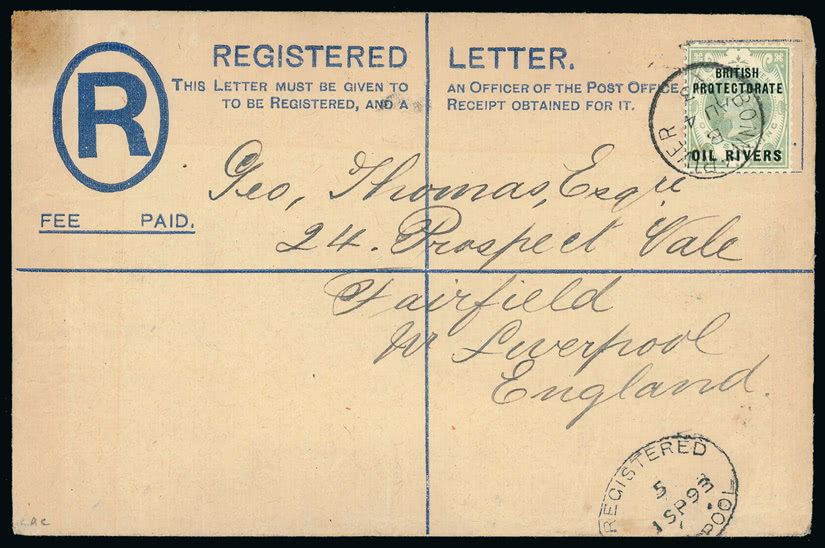 REGISTERED LETTER.
THIS LETTER MUST BE GIVEN TO AN OFFICER OF THE POST OFFICE
TO BE REGISTERED, AND A RECEIPT OBTAINED FOR IT.
R
FEE PAID.
BRITISH
PROTECTORATE
OIL RIVERS
BONNY RIVER
Geo, Thomas, Esqre
24. Prospect Vale
Fairfield
Nr Liverpool
England.
REGISTERED
5
1 SP 93
POOL